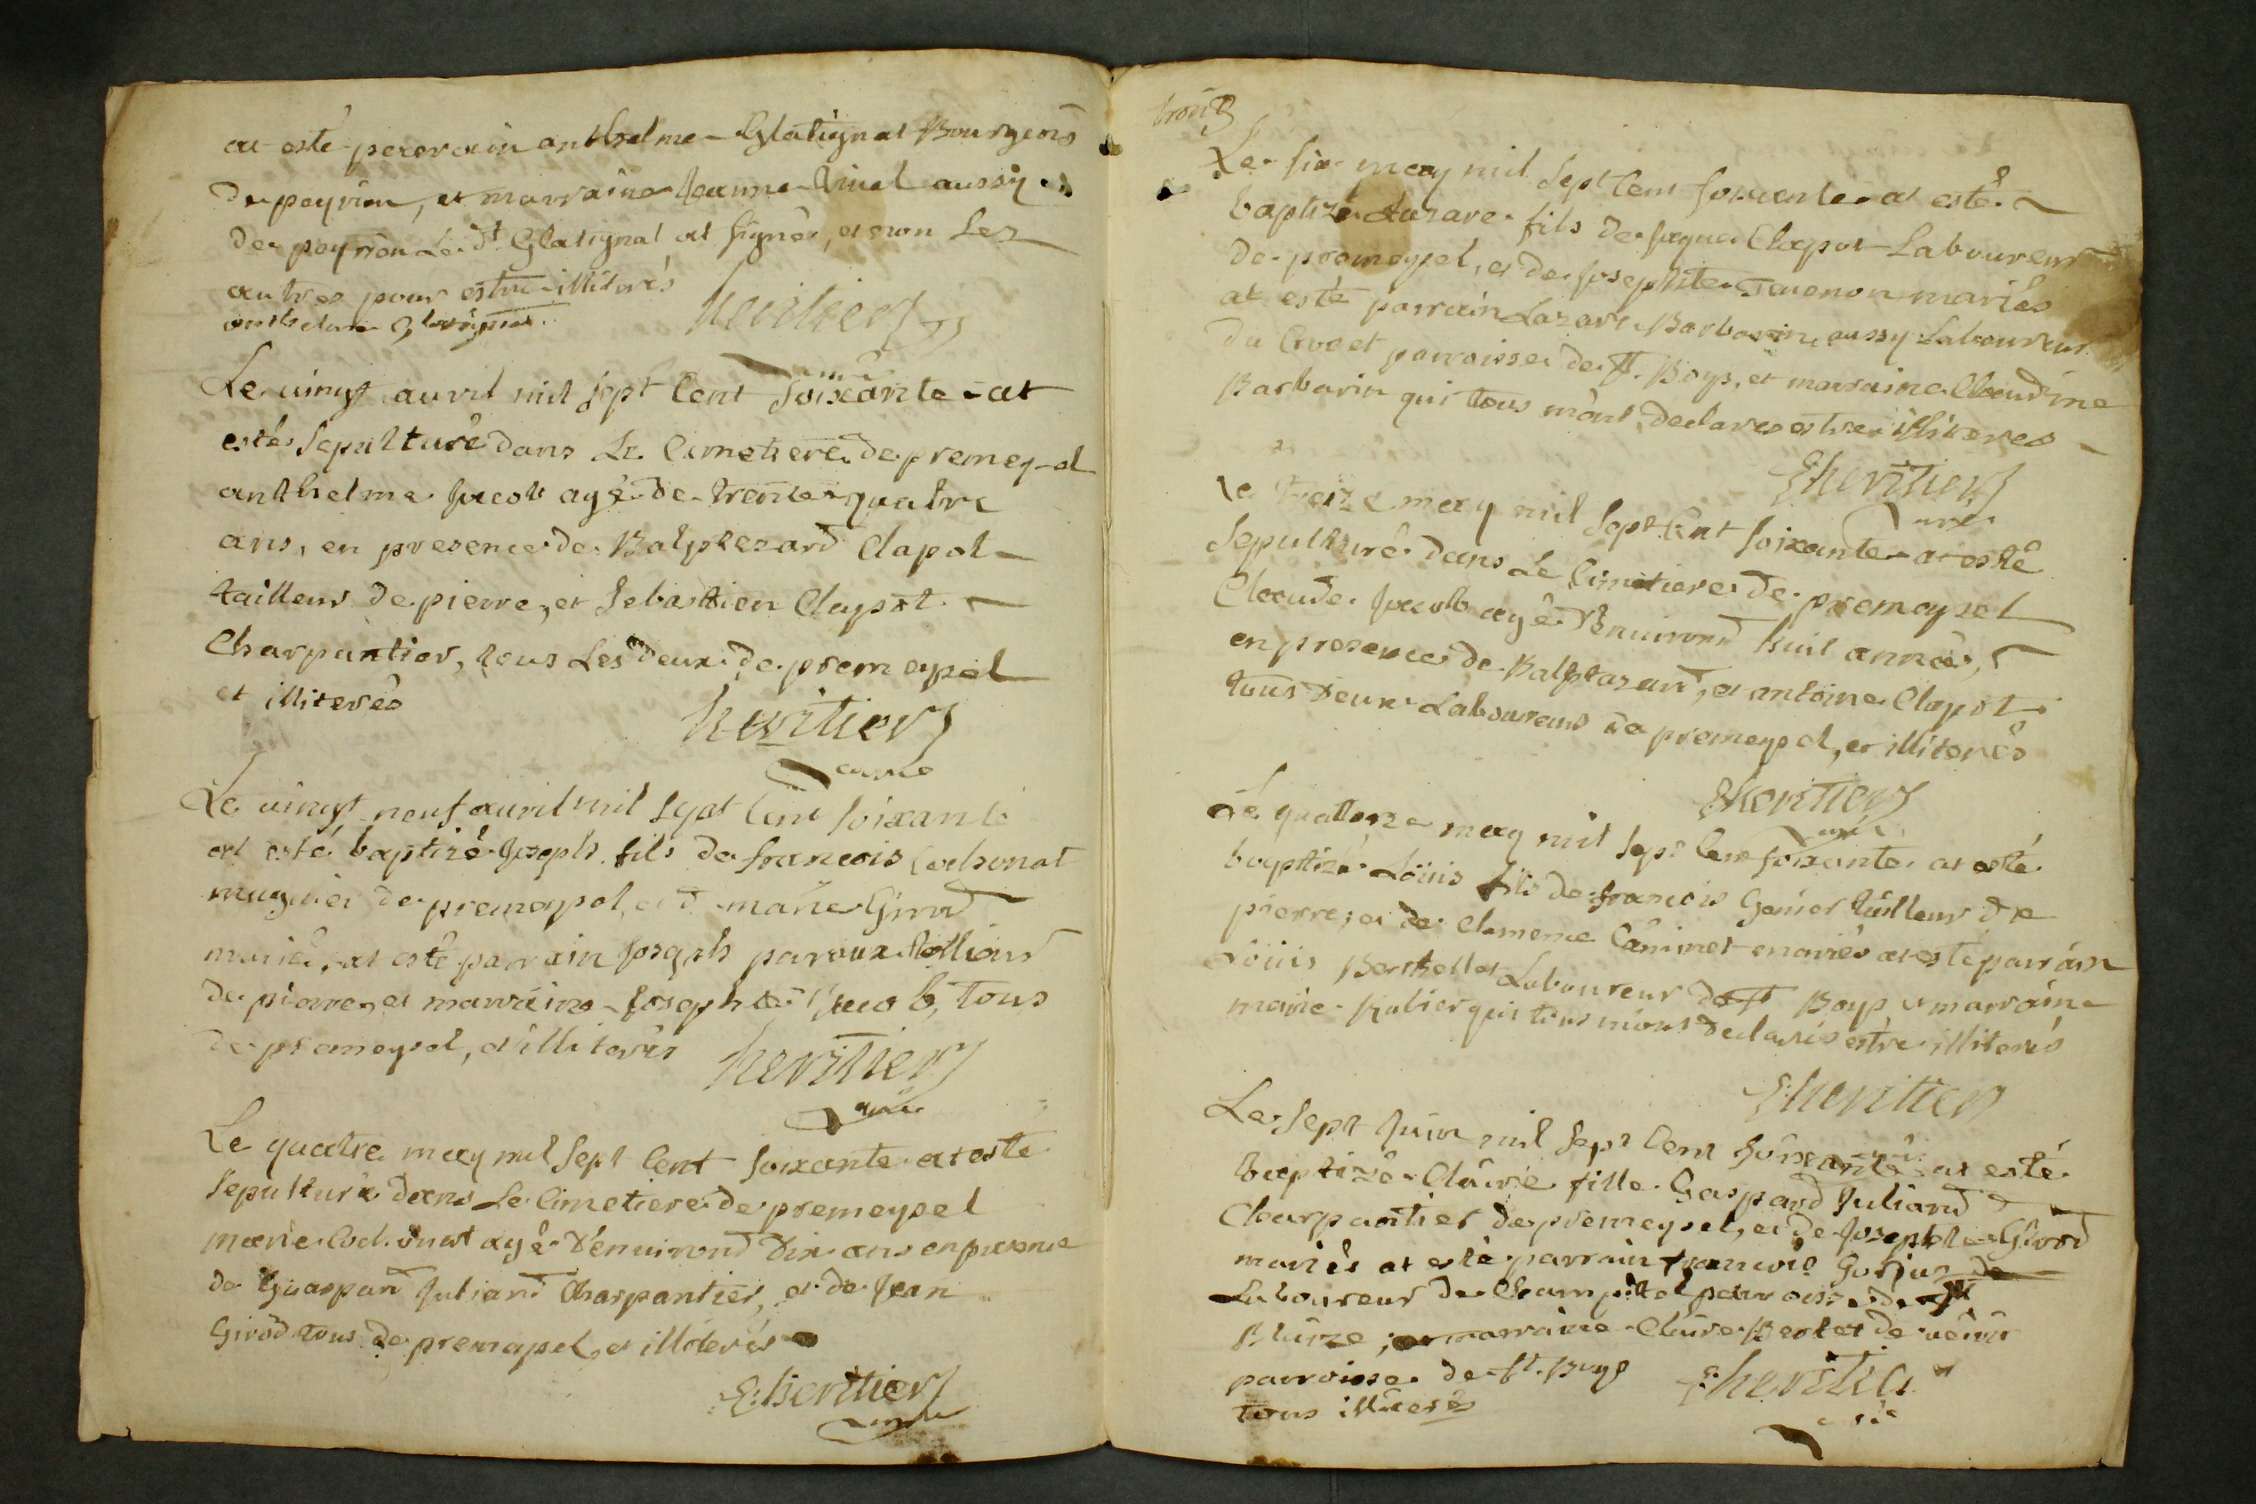 at esté parrain anthelme Glatignat Bourgeois
de peyrieu, et marraine Jeanne aussy
de peyrieu Le dt Glatignat at signé, et non Les
autres pour estre illiterés heritier
anthelme Glatignat
curé
Le vingt auvril mil sept Cent soixante at
esté sepulturé dans Le Cimetiere de premeysel
anthelme Jacob agé de trente quatre
ans, en presence de Balphezard Clapot
tailleur de pierre, et Sebastien Claypot
Charpantier, tous Les deux de premeysel
et illiterés heritier
curé
Le vingt neuf auvril mil sept Cent soixante
at esté baptizé Joseph fils de francois Cochonat
mugnier de premeysel, et d marie Girod
mariés, at esté parrain Joseph paroux
de pierre, et marraine Josephte Jacob, tous
de premeysel, et illiterés heritier
curé
Le quatre may mil sept Cent soixante at esté
sepulturé dans Le Cimetiere de premeysel
marie Cochonat agé d'enuirond dix ans en presence
de Gaspard Juliand Charpantier, et de Jean
Girod tous de premeysel et illiterés
E: heritier
curé
trois
Le six may mil sept Cent soixante at esté
baptizé Lazare fils de Jaque Clapot Laboureur
de premeysel, et de Josephte mariés
at esté parrain Lazare Barbarin aussy Laboureur
du Crozet parroisse de st. Boys, et marraine Claudine
Barbarin qui tous m'ont declarés estre illiteres
E: heritier
curé
Le treize may mil sept Cent soixante at esté
sepulturé dans Le Cimetiere de premeysel
Claude Jacob agé d'enuirond huit années,
en presence de Balphazard, et antoine Clapot
tous deux Laboureurs de premeysel, et illiterés
E heritier
curé
Le quattorze may mil sept Cent soixante at esté
baptizé Loüis fils de francois tailleur de
pierre, et de Clemence Caminet mariés at esté parrain
Loüis Berthellet Laboureur de st Boys et marraine
marie qui tous m'ont declarés estre illiterés
E: heritier
curé
Le sept Juin mil sept Cent soixante at esté
baptizé Claire fille Gaspard Juliand
Charpantier de premeysel, et de Josephte Girod
mariés at esté parrain francois de
Laboureur de Champtel parroisse de st
Blaize, et marraine Claire Bertet de
parroisse de st. Boys E: heritier
tous illiterés
curé